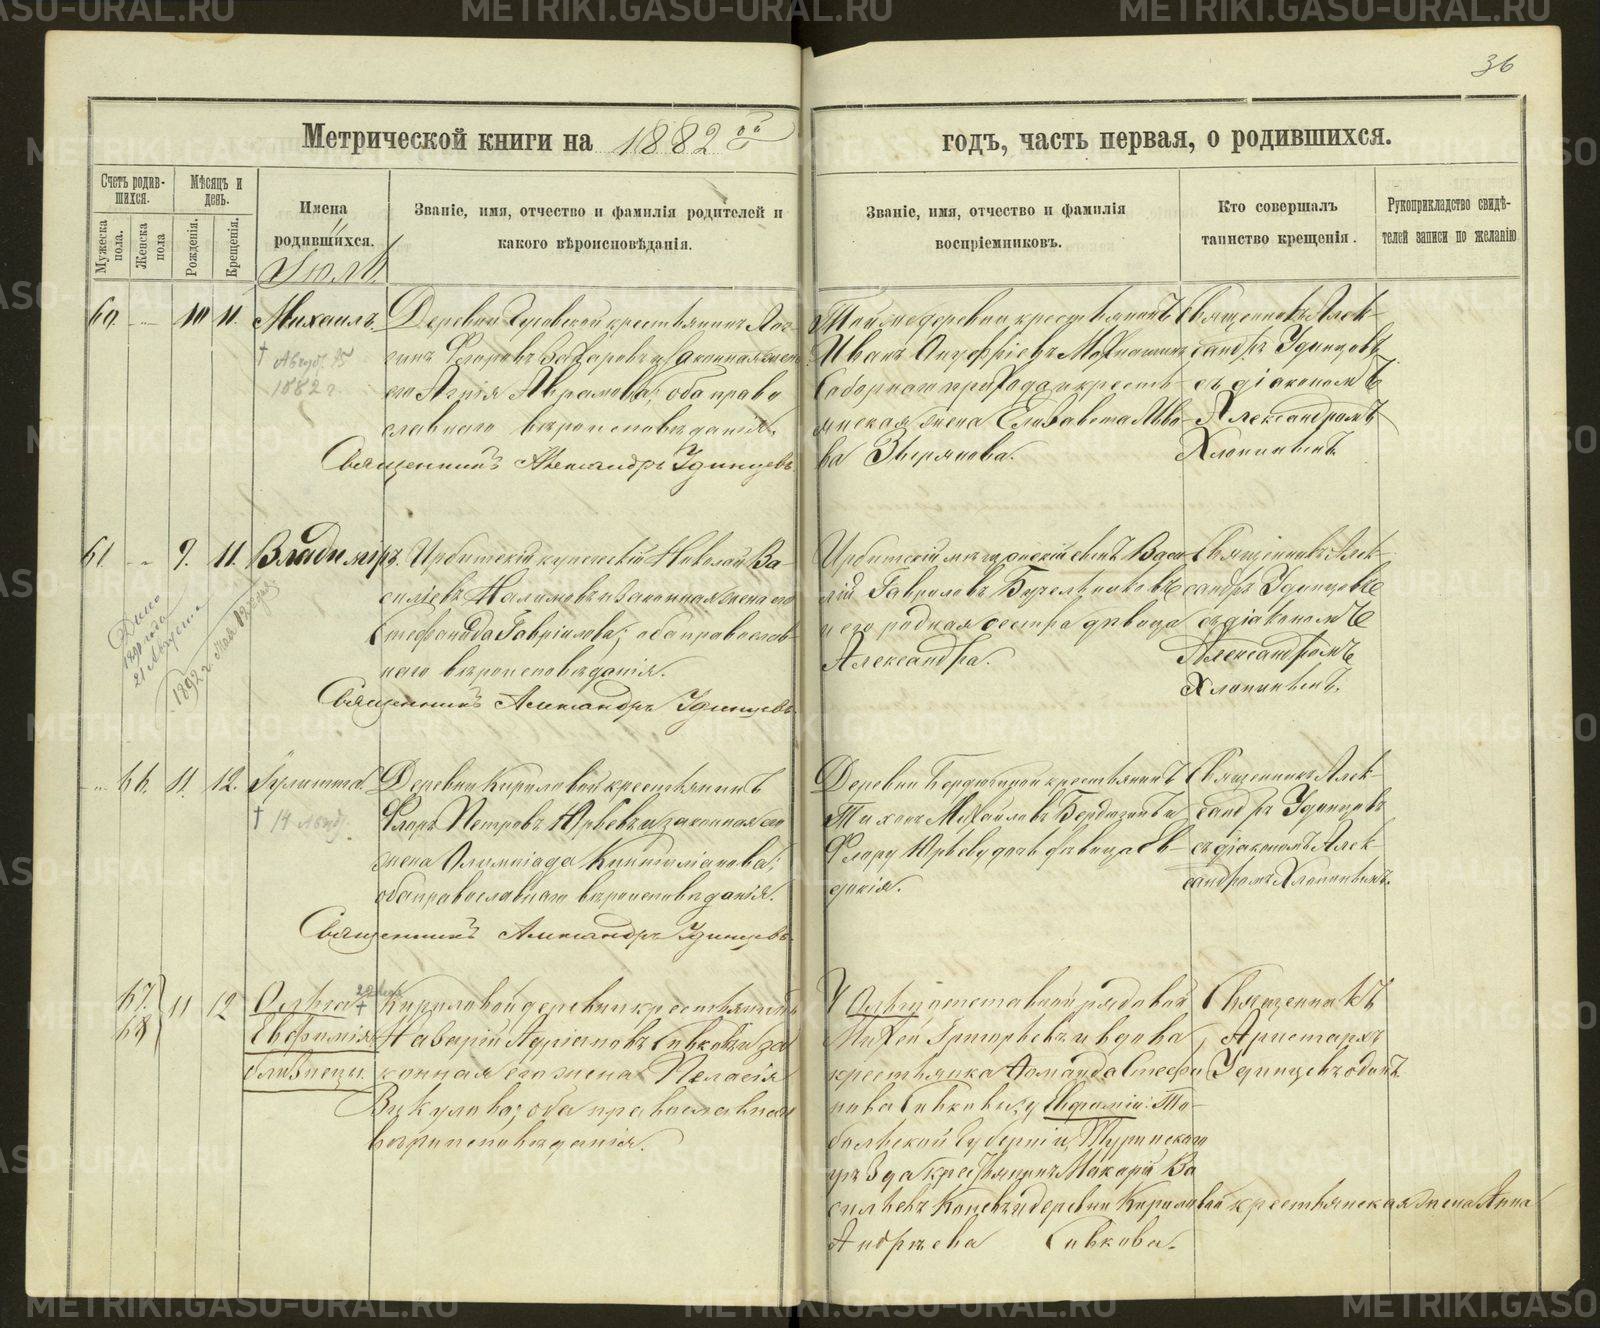 36
Метрической книги на 1882 ой годъ, часть первая, о родившихся.
Счетъ родив-
шихся.
Мужеска
пола.
Женска
пола
Мѣсяцъ и
день.
Рожденія.
Крещенія.
Имена
родившихся.
Званіе, имя, отчество и фамилія родителей и
какого вѣроисповѣданія.
Званіе, имя, отчество и фамилія
воспріемниковъ.
Кто совершалъ
таинство крещенія.
Рукоприкладство свидѣ-
телей записи по желанію
Іюль
60. 10 11. Михаилъ
† Август.
1882 г.
Деревни крестьянинъ Лог-
гинъ Флоровъ Захаровъ и законная жена
его Агнія Аврамова; оба право
славнаго вѣроисповѣданія.
Священникъ Александръ Удинцевъ
Той же деревни крестьянинъ
Иванъ Онуфріевъ
Соборнаго прихода крестъ-
янская жена Елизавета Ива-
ва Звѣрякова.
Священникъ Алек-
сандръ Удинцевъ
съ діакономъ
Александромъ
Хлопинымъ.
61 9. 11. Владиміръ.
Дано
21 Августа
1892 г. Мая
Ирбитскій купеческій Николай Ва-
сильевъ Налимовъ и законная жена его
Стефанида Гавріилова; оба православ-
наго вѣроисповѣданія.
Священникъ Александръ Удинцевъ
Ирбитскій мѣщанскій сынъ Васи
лій Гавриловъ
и его родная сестра дѣвица
Александра.
Священникъ Алек-
сандръ Удинцевъ
съ діакономъ
Александромъ
Хлопинымъ.
66. 11. 12. Іулитта.
† 14 Август.
Деревни Кириловой крестьянинъ
Флоръ Петровъ Юрьевъ и законная его
жена Олимпіада Киптиліанова;
оба православнаго вѣроисповѣданія.
Священникъ Александръ Удинцевъ
Деревни Бердюгиной крестьянинъ
Тихонъ Михайловъ Бердюгинъ и
Флора Юрьева дочь дѣвица Ев-
докія.
Священникъ Алек-
сандръ Удинцевъ
съ діакономъ Алек-
сандромъ Хлопинымъ.
67. 68 11 12 Ольга †
Евфимія
близнецы.
Кириловой деревни крестьянинъ
Назарій Адріановъ Сивковъ и за
конная его жена Пелагія
Вукулова; оба православнаго
вѣроисповѣданія.
У Ольги отставной рядовой
Михей Григорьевъ и вдова
крестьянка Домника Стефа
нова Сивковы, у Евфиміи: То-
больской губерніи, Туринскаго
уѣзда крестьянинъ Макарій Ва
сильевъ Коневъ и деревни Кириловой крестьянская жена Анна
Андреева Сивкова.
Священникъ
Аристархъ
Удинцевъ одинъ
METRIKI.GASO-URAL.RU